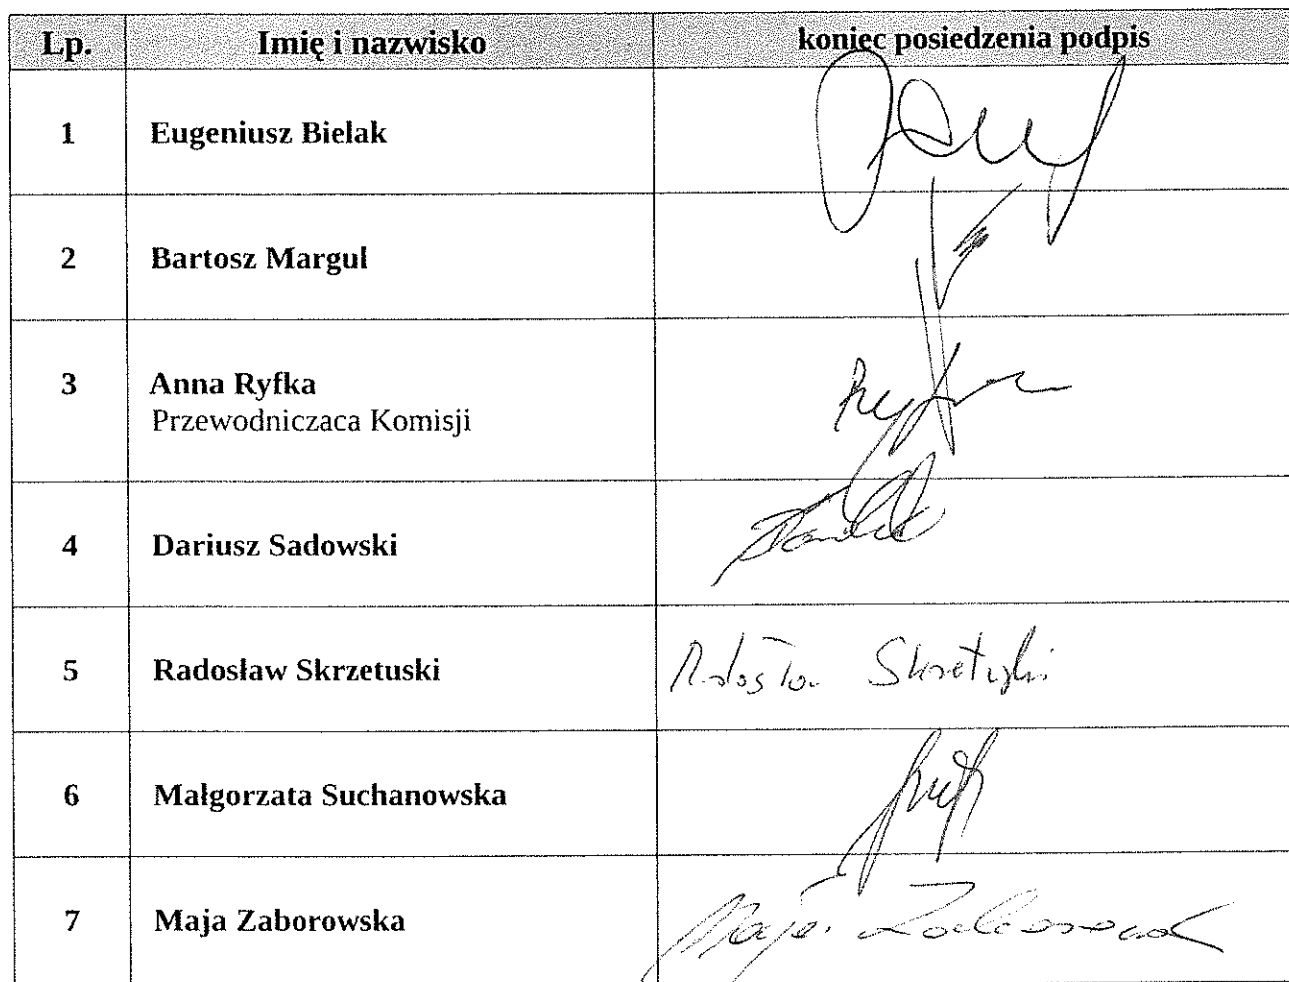 Lp. Imię i nazwisko koniec posiedzenia podpis
1 Eugeniusz Bielak
2 Bartosz Margul
3 Anna Ryfka
Przewodniczaca Komisji
4 Dariusz Sadowski
5 Radosław Skrzetuski
6 Małgorzata Suchanowska
7 Maja Zaborowska Maja